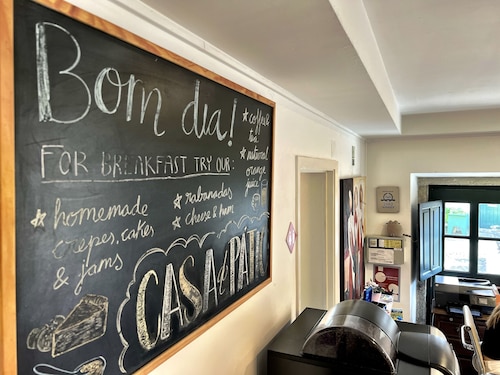 Bom dia!
FOR BREAKFAST TRY OUR:
★ homemade
crepes, cakes
& jams
★ rabanadas
★ cheese & ham
★ coffee
tea
★ natural
orange
juice
CASA do PÁTIO